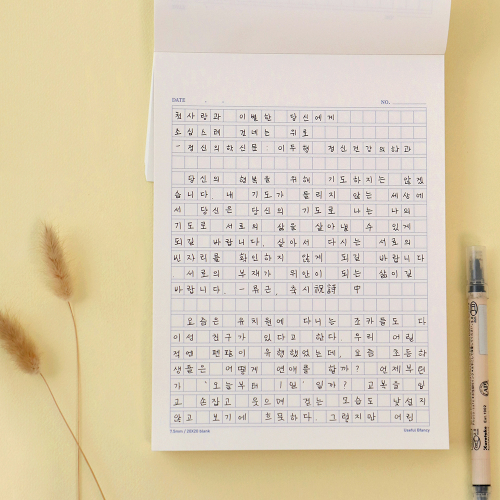 DATE . . NO.
첫사랑과 이별한 당신에게
조심스레 건네는 위로
-정신의학신문: 이두형 정신건강의학과
당신의 행복을 위해 기도하지는 않겠
습니다. 내 기도가 들리지 않는 세상에
서 당신은 당신의 기도로 나는 나의
기도로 서로의 삶을 살아낼 수 있게
되길 바랍니다. 살아서 다시는 서로의
빈자리를 확인하지 않게 되길 바랍니다
서로의 부재가 위안이 되는 삶이길
바랍니다. -류근, 축시祝詩 中
요즘은 유치원에 다니는 조카들도 다
이성 친구가 있다고 한다. 우리 어릴
적엔 펜팔이 유행했었는데, 요즘 초등학
생들은 어떻게 연애를 할까? 언제부턴
가 '오늘부터 1일' 일까? 교복을 입
고 손잡고 웃으며 걷는 모습도 낯설지
않고 보기에 흐뭇하다. 그렇지만 어린
7.5mm / 20X20 blank Useful Blancy